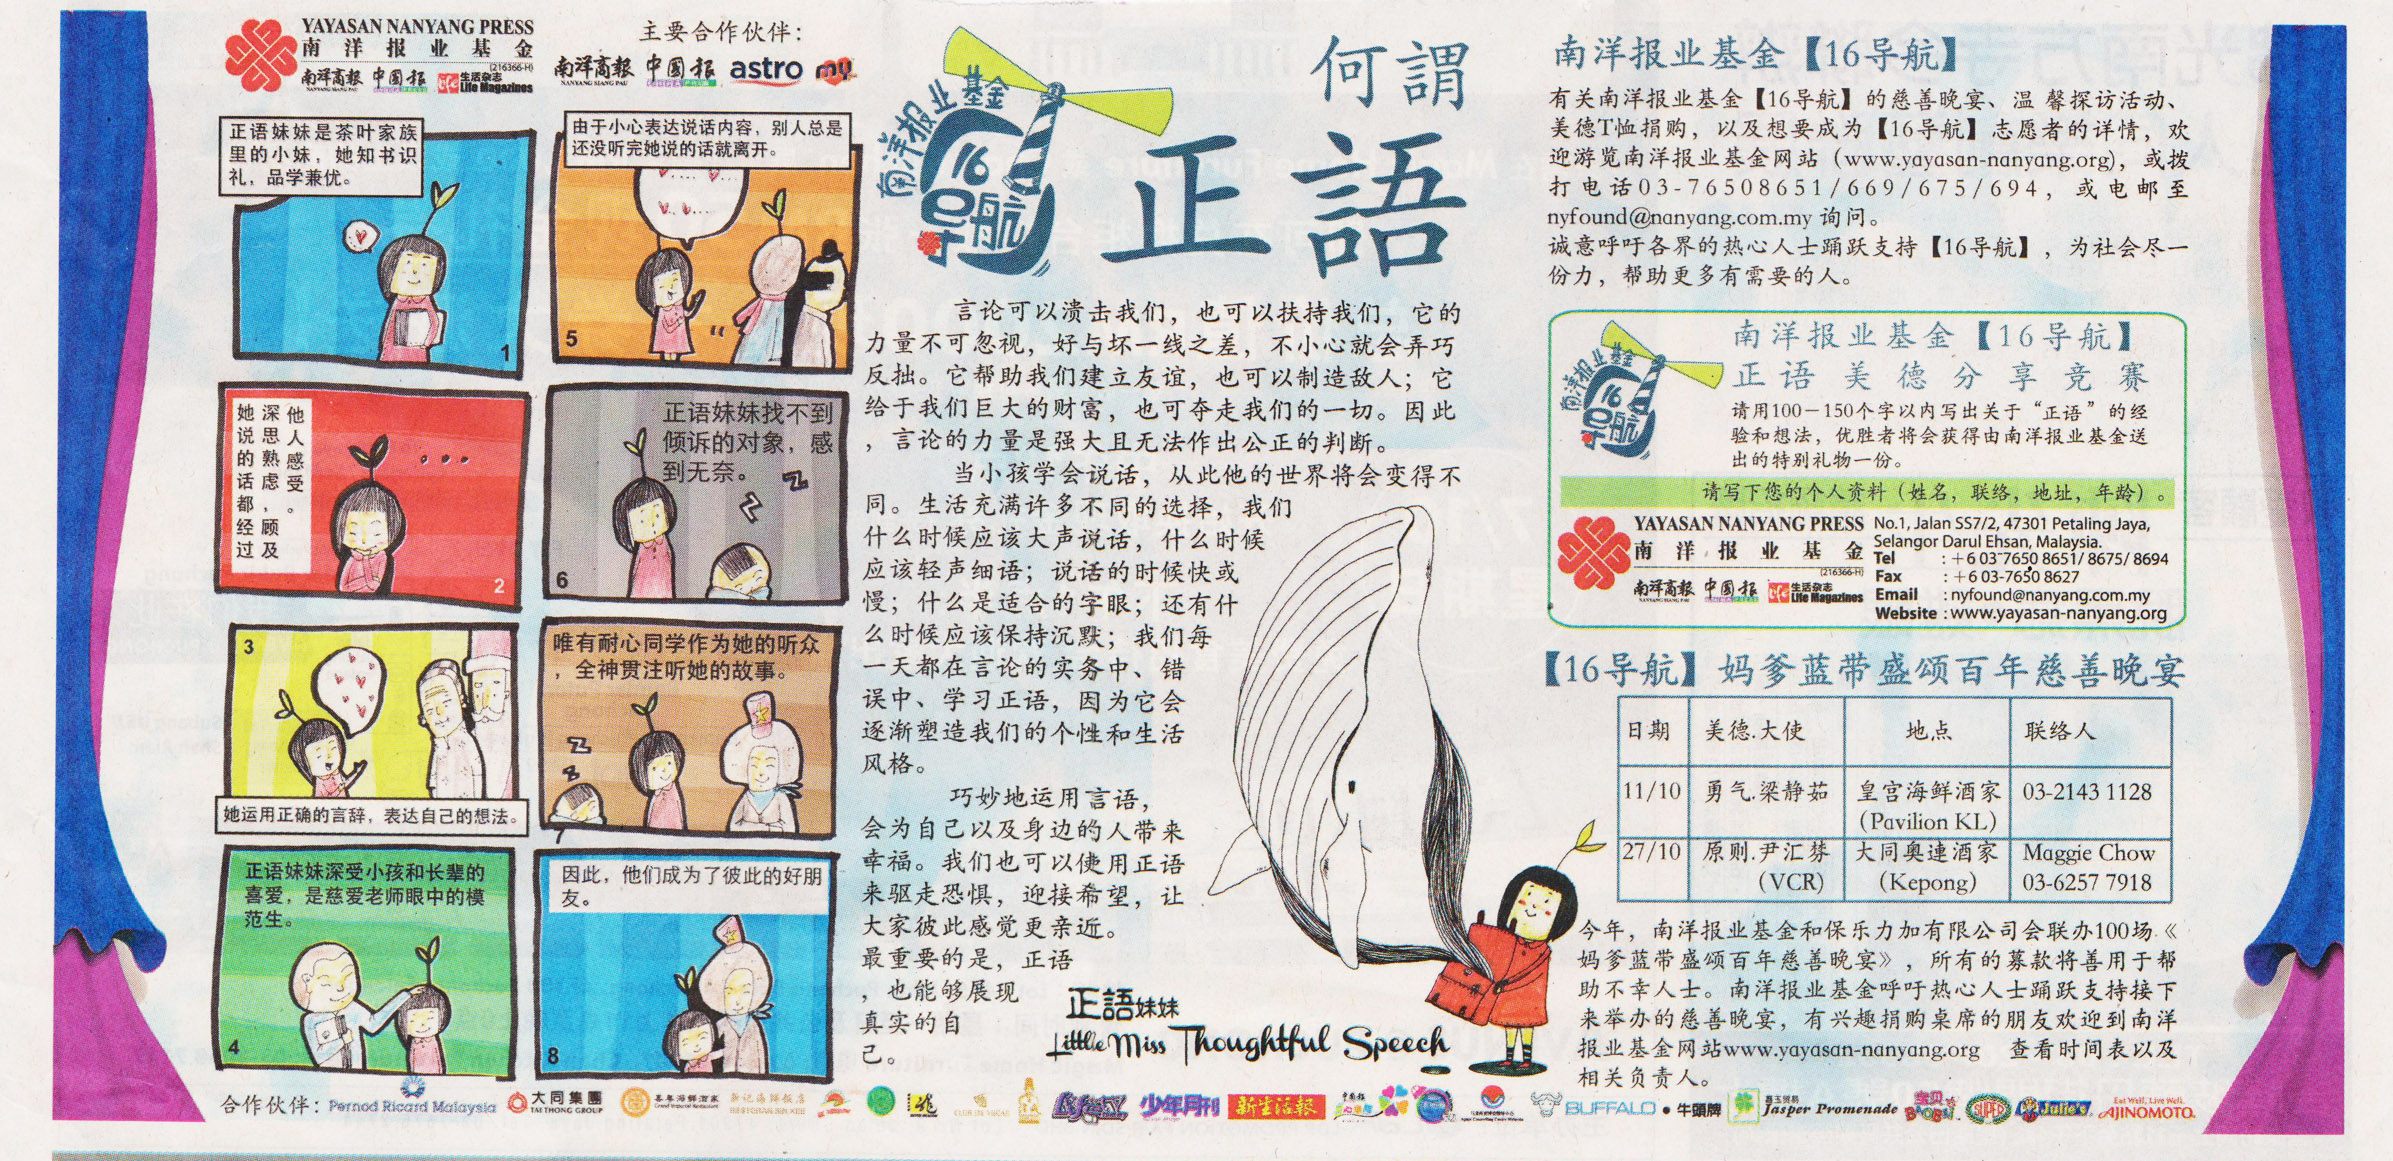 YAYASAN NANYANG PRESS
南洋报业基金
(216366-H)
南洋商報
NANYANG SIANG PAU
中國報
CHINA PRESS
life 生活杂志
Life Magazines
主要合作伙伴：
南洋商報
NANYANG SIANG PAU
中國報
CHINA PRESS
astro
my
正语妹妹是茶叶家族
里的小妹，她知书识
礼，品学兼优。
1
她说的话都经过
深思熟虑，顾及
他人感受。
2
3
她运用正确的言辞，表达自己的想法。
正语妹妹深受小孩和长辈的
喜爱，是慈爱老师眼中的模
范生。
4
由于小心表达说话内容，别人总是
还没听完她说的话就离开。
5
正语妹妹找不到
倾诉的对象，感
到无奈。
z
z
6
唯有耐心同学作为她的听众
，全神贯注听她的故事。
7
因此，他们成为了彼此的好朋
友。
8
南洋报业基金
16
导航
何謂
正語
言论可以溃击我们，也可以扶持我们，它的
力量不可忽视，好与坏一线之差，不小心就会弄巧
反拙。它帮助我们建立友谊，也可以制造敌人；它
给于我们巨大的财富，也可夺走我们的一切。因此
，言论的力量是强大且无法作出公正的判断。
当小孩学会说话，从此他的世界将会变得不
同。生活充满许多不同的选择，我们
什么时候应该大声说话，什么时候
应该轻声细语；说话的时候快或
慢；什么是适合的字眼；还有什
么时候应该保持沉默；我们每
一天都在言论的实务中、错
误中、学习正语，因为它会
逐渐塑造我们的个性和生活
风格。
巧妙地运用言语，
会为自己以及身边的人带来
幸福。我们也可以使用正语
来驱走恐惧，迎接希望，让
大家彼此感觉更亲近。
最重要的是，正语
，也能够展现
真实的自
己。
正語妹妹
Little Miss Thoughtful Speech
南洋报业基金【16导航】
有关南洋报业基金【16导航】的慈善晚宴、温 馨探访活动、
美德T恤捐购，以及想要成为【16导航】志愿者的详情，欢
迎游览南洋报业基金网站（www.yayasan-nanyang.org)，或拨
打电话03-76508651/669/675/694，或电邮至
nyfound@nanyang.com.my 询问。
诚意呼吁各界的热心人士踊跃支持【16导航】，为社会尽一
份力，帮助更多有需要的人。
南洋报业基金
16
导航
南洋报业基金【16导航】
正语美德分享竞赛
请用100－150个字以内写出关于“正语”的经
验和想法，优胜者将会获得由南洋报业基金送
出的特别礼物一份。
请写下您的个人资料（姓名，联络，地址，年龄）。
YAYASAN NANYANG PRESS
南洋报业基金
(216366-H)
南洋商報
NANYANG SIANG PAU
中國報
CHINA PRESS
life 生活杂志
Life Magazines
No.1, Jalan SS7/2, 47301 Petaling Jaya,
Selangor Darul Ehsan, Malaysia.
Tel : +6 03-7650 8651/ 8675/ 8694
Fax : +6 03-7650 8627
Email : nyfound@nanyang.com.my
Website : www.yayasan-nanyang.org
【16导航】妈爹蓝带盛颂百年慈善晚宴
日期 美德.大使 地点 联络人
11/10 勇气.梁静茹 皇宫海鲜酒家 (Pavilion KL) 03-2143 1128
27/10 原则.尹汇棽 (VCR) 大同奥連酒家 (Kepong) Maggie Chow 03-6257 7918
今年，南洋报业基金和保乐力加有限公司会联办100场《
妈爹蓝带盛颂百年慈善晚宴》，所有的募款将善用于帮
助不幸人士。南洋报业基金呼吁热心人士踊跃支持接下
来举办的慈善晚宴，有兴趣捐购桌席的朋友欢迎到南洋
报业基金网站www.yayasan-nanyang.org 查看时间表以及
相关负责人。
合作伙伴：
Pernod Ricard Malaysia
大同集團
TAI THONG GROUP
少年月刊
新生活報
BUFFALO • 牛頭牌
Jasper Promenade
宝贝
BAOBEI
SUPER
Julie's
Eat Well, Live Well.
AJINOMOTO.